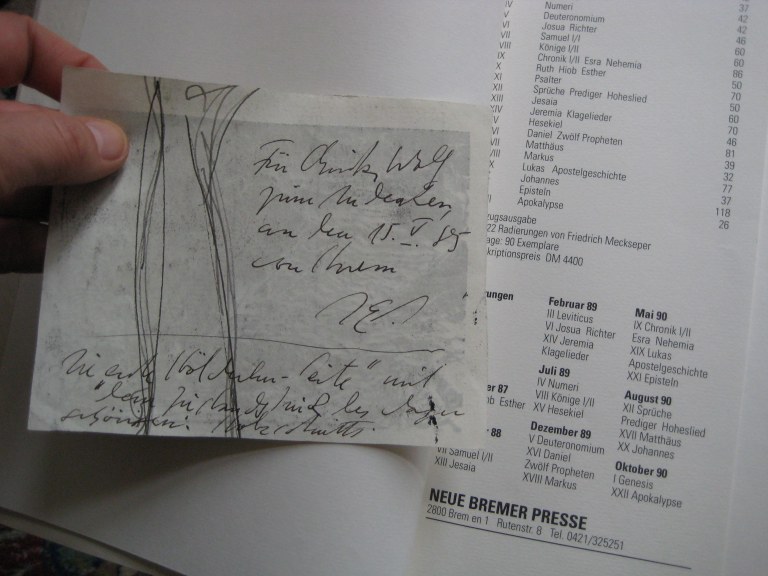 Für
zum Andenken
an den 15. V. 85
von Ihrem
mit
IV Numeri 37
V Deuteronomium 42
VI Josua Richter 42
VII Samuel I/I 46
VIII Könige I/II 60
IX Chronik I/II Esra Nehemia 60
X Ruth Hiob Esther 86
XI Psalter 50
XII Sprüche Prediger Hoheslied 70
Jesaia 50
Jeremia Klagelieder 60
Hesekiel 70
Daniel Zwölf Propheten 46
Matthäus 81
Markus 39
Lukas Apostelgeschichte 32
Johannes 77
Episteln 37
Apokalypse 118
26
zugsausgabe
22 Radierungen von Friedrich Meckseper
age: 90 Exemplare
kriptionspreis DM 4400
rungen
er 87
b Esther
r 88
VII Samuel I/II
XIII Jesaia
Februar 89
III Leviticus
VI Josua Richter
XIV Jeremia
Klagelieder
Juli 89
IV Numeri
VIII Könige I/II
XV Hesekiel
Dezember 89
V Deuteronomium
XVI Daniel
Zwölf Propheten
XVIII Markus
Mai 90
IX Chronik I/II
Esra Nehemia
XIX Lukas
Apostelgeschichte
XXI Episteln
August 90
XII Sprüche
Prediger Hoheslied
XVII Matthäus
XX Johannes
Oktober 90
I Genesis
XXII Apokalypse
NEUE BREMER PRESSE
2800 Brem en 1 Rutenstr. 8 Tel. 0421/325251